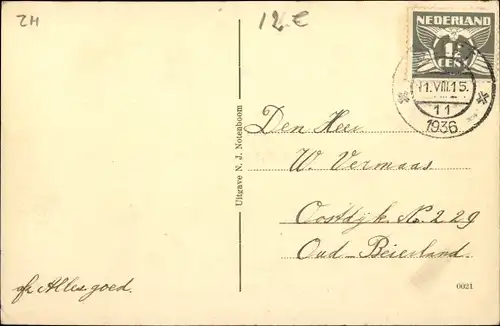 ZH
12.€
NEDERLAND
1½
CENT
11.VIII.15.
11
1936
Uitgave N. J. Notenboom
Den Heer
W. Vermaas
Oostdijk No. 229
Oud-Beierland.
Alles goed.
0021